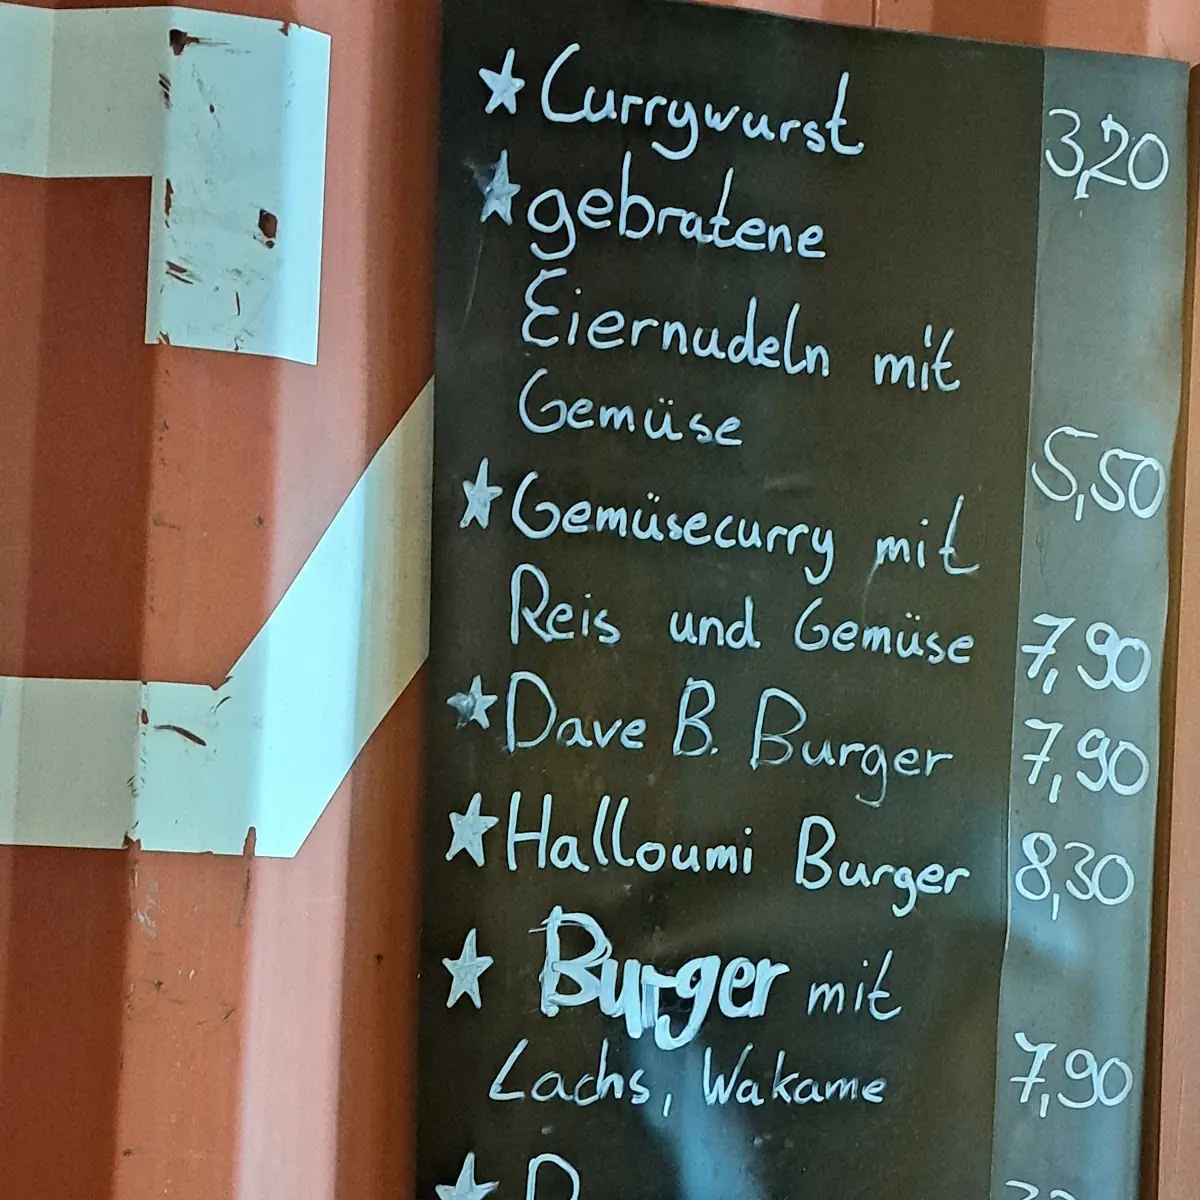 Currywurst 3,20
gebratene
Eiernudeln mit
Gemüse 5,50
Gemüsecurry mit
Reis und Gemüse 7,90
Dave B. Burger 7,90
Halloumi Burger 8,30
Burger mit
Lachs, Wakame 7,90